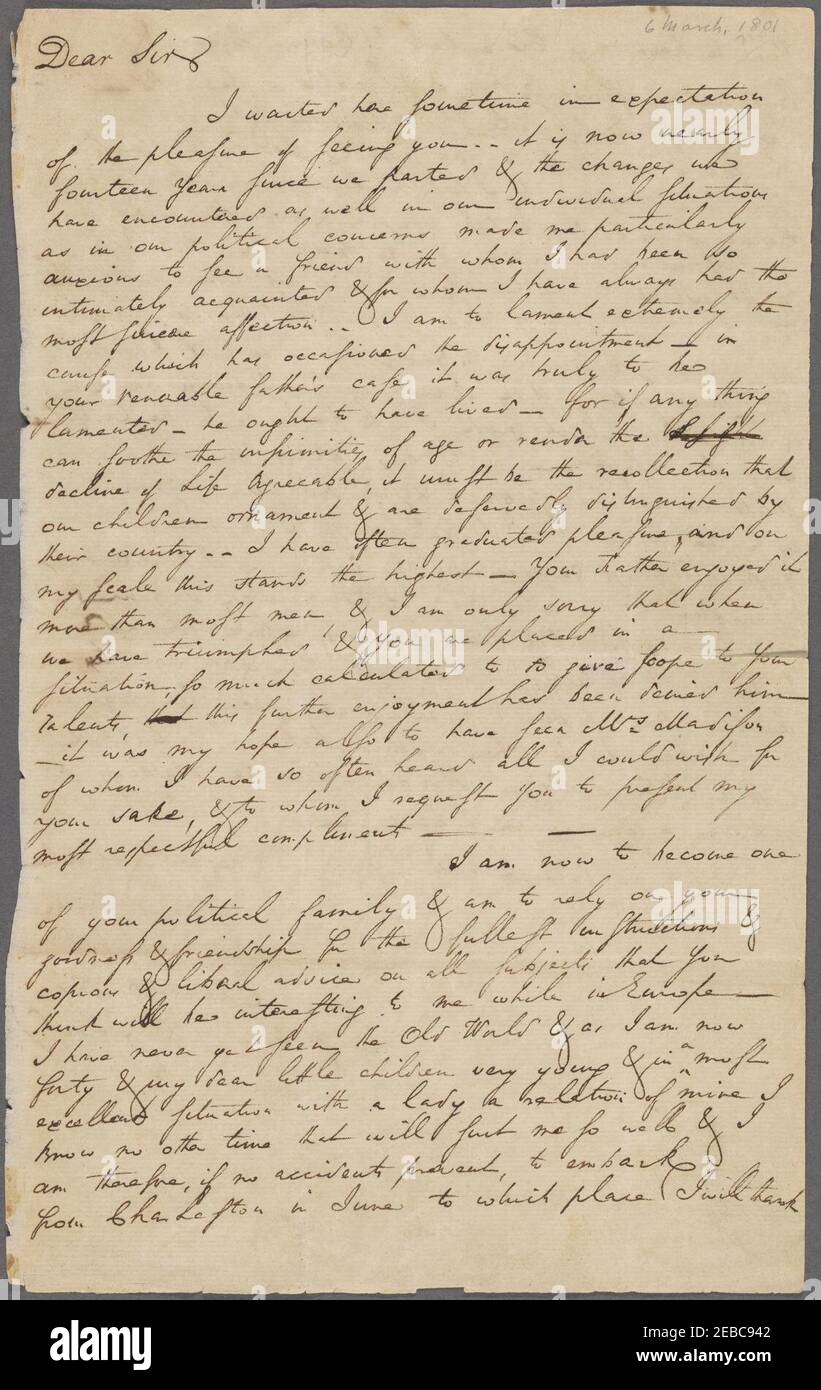 6 March, 1801
Dear Sir
I waited here sometime in expectation
of the pleasure of seeing you -- it is now nearly
fourteen years since we parted & the changes we
have encountered as well in our individual situations
as in our political concerns made me particularly
anxious to see a friend with whom I had been so
intimately acquainted & for whom I have always had the
most sincere affection -- I am to lament extremely the
cause which has occasioned the disappointment – in
your venerable father's case it was truly to be
lamented – he ought to have lived – for if any thing
can soothe the infirmities of age or render the
decline of Life Agreeable, it must be the recollection that
our children ornament & are deservedly distinguished by
their country -- I have often graduated pleasure, and on
my scale this stands the highest – Your Father enjoyed it
more than most men, & I am only sorry that when
we have triumphed & you are placed in a
situation so much calculated to to give scope to your
Talents, that this further enjoyment has been denied him
– it was my hope also to have seen Mrs Madison
of whom I have so often heard all I could wish for
your sake, & to whom I request you to present my
most respectful compliments —
I am now to become one
of your political family & am to rely on your
goodness & friendship for the fullest instructions &
copious & liberal advice on all subjects that you
think will be interesting to me while in Europe —
I have never yet seen the Old World & as I am now
forty & my dear little children very young & in a most
excellent situation with a lady a relation of mine I
know no other time that will suit me so well & I
am therefore, if no accidents prevent, to embark
from Charleston in June to which place I will thank
alamy
alamy
Image ID: 2EBC942
www.alamy.com